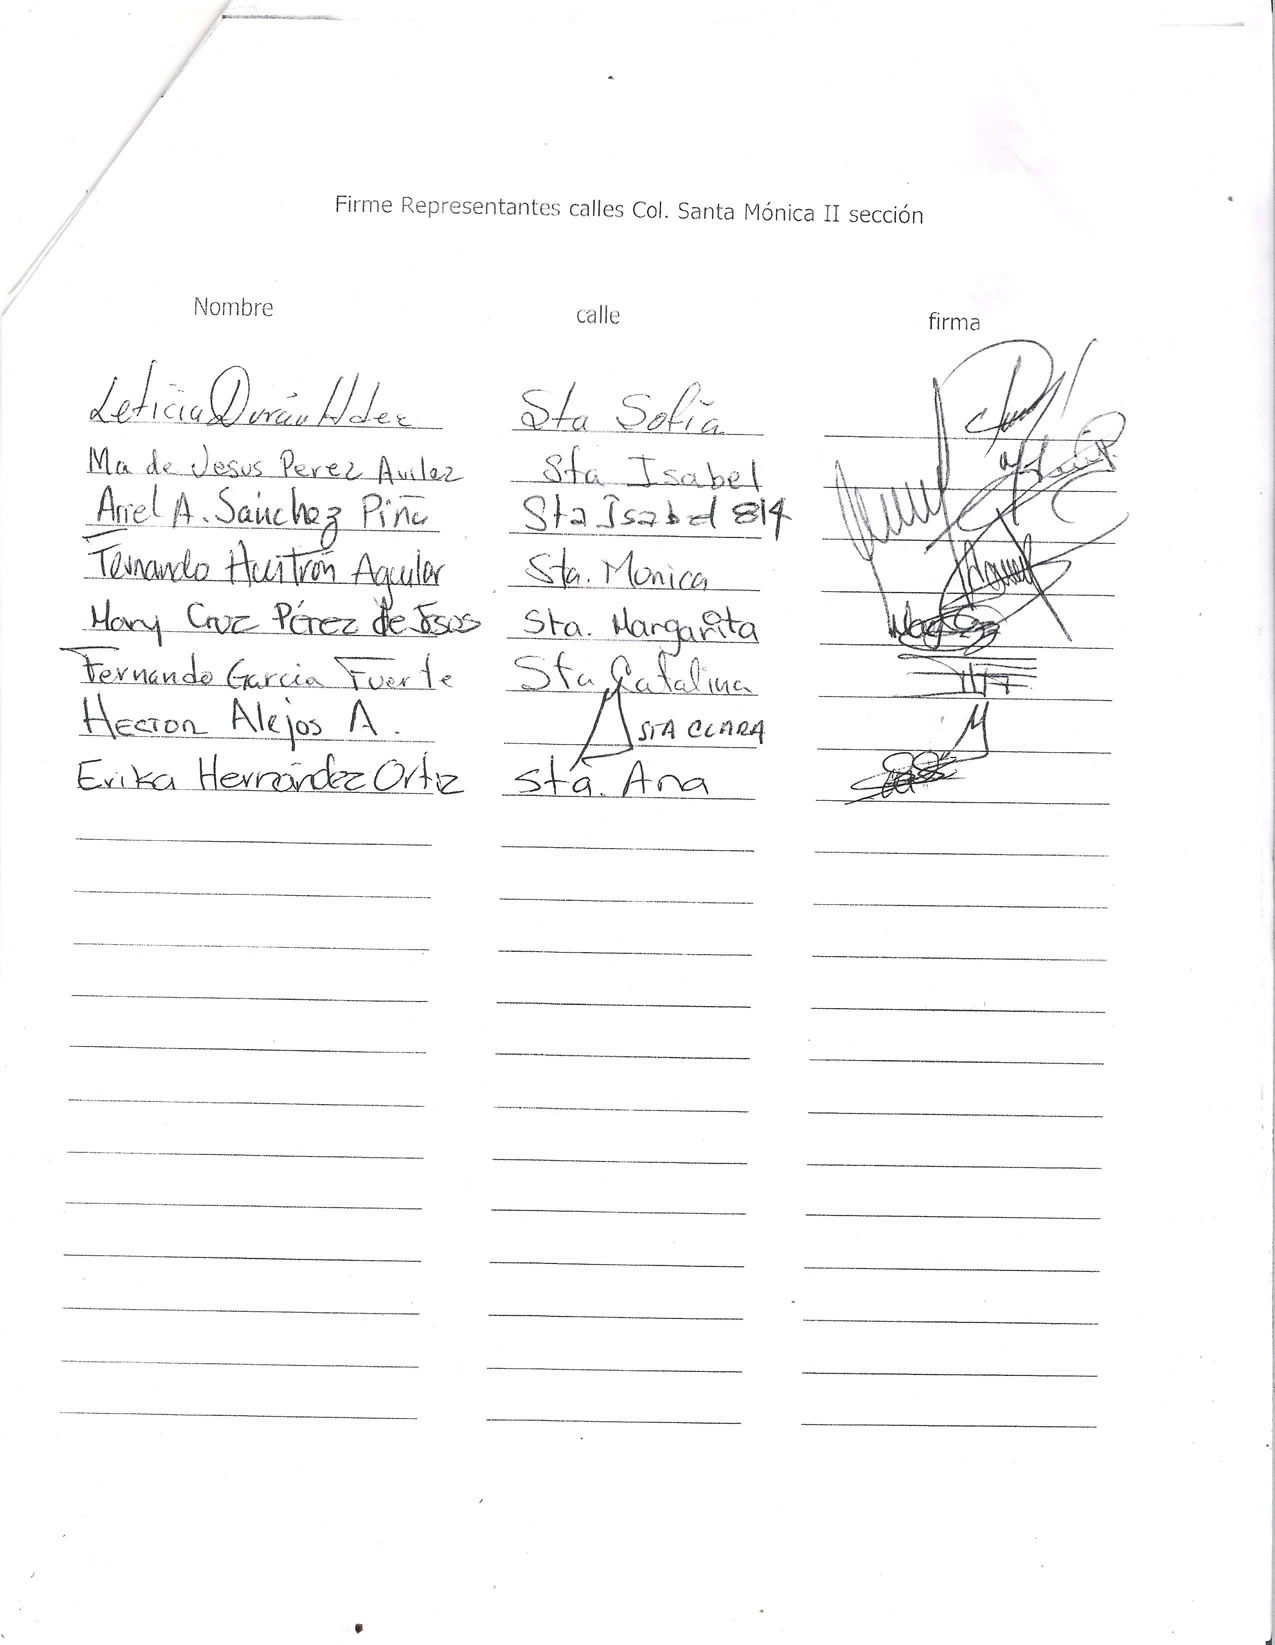 Firme Representantes calles Col. Santa Mónica II sección
Nombre calle firma
Leticia Durán Hdez Sta Sofía
Ma de Jesus Perez Avilez Sta Isabel
Ariel A. Sánchez Piña Sta Isabel 814
Fernando Huitrón Aguilar Sta. Monica
Mary Cruz Pérez de Jesus Sta. Margarita
Fernando Garcia Fuerte Sta Catalina
Hector Alejos A. STA CLARA
Erika Hernández Ortiz Sta. Ana